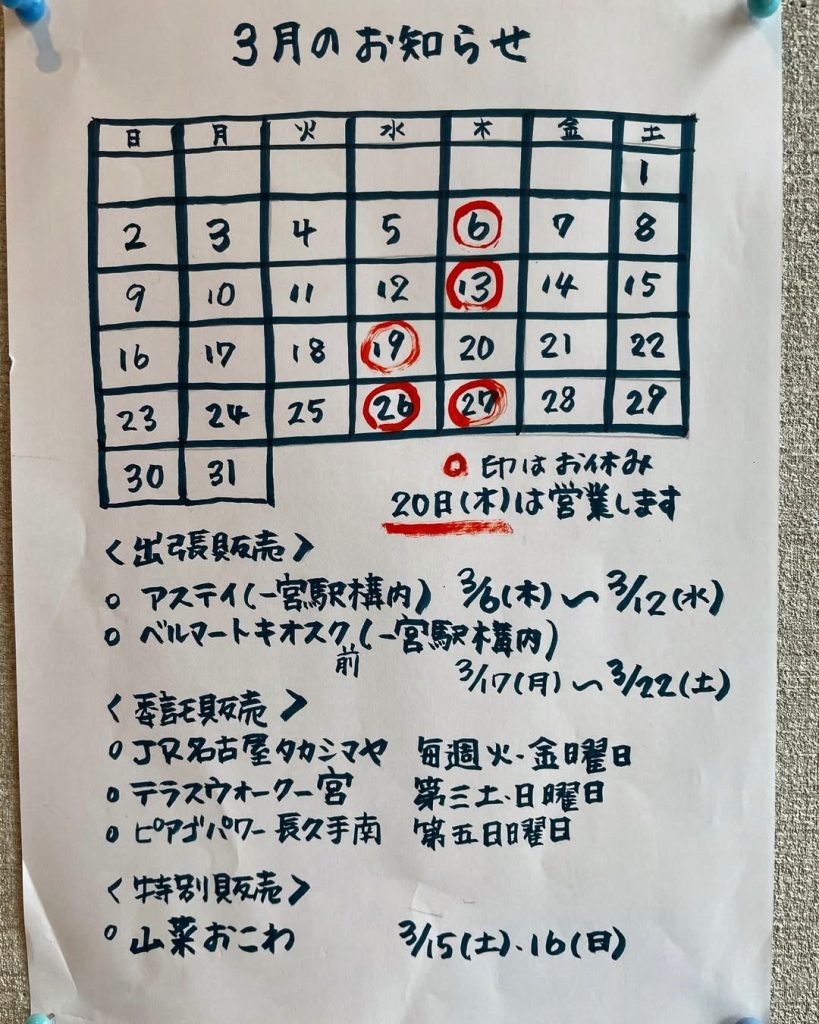 3月のお知らせ
日 月 火 水 木 金 土
1
2 3 4 5 6 7 8
9 10 11 12 13 14 15
16 17 18 19 20 21 22
23 24 25 26 27 28 29
30 31
○印はお休み
20日(木)は営業します
〈出張販売〉
○ アスティ(一宮駅構内) 3/6(木)〜3/12(水)
○ ベルマートキオスク前(一宮駅構内)
3/17(月)〜3/22(土)
〈委託販売〉
○ JR名古屋タカシマヤ 毎週火・金曜日
○ テラスウォーク一宮 第三土・日曜日
○ ピアゴパワー長久手南 第五日曜日
〈特別販売〉
○ 山菜おこわ 3/15(土)・16(日)